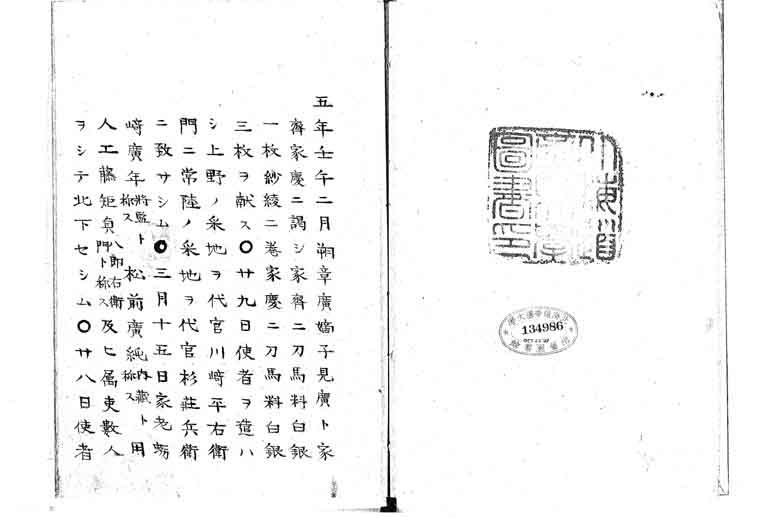 五年壬午二月朔章廣嫡子見廣ト家
齊家慶ニ謁シ家齊ニ刀馬料白銀
一枚紗綾二巻家慶ニ刀馬料白銀
三枚ヲ献ス〇廿九日使者ヲ遣ハ
シ上野ノ采地ヲ代官川﨑平右衛
門ニ常陸ノ采地ヲ代官杉莊兵衛
ニ致サシム〇三月十五日家老蛎
﨑廣年将監ト称ス松前廣純内藏ト称ス用
人工藤矩貞八郎右衛門ト称ス及ヒ属吏數人
ヲシテ北下セシム〇廿八日使者
134986